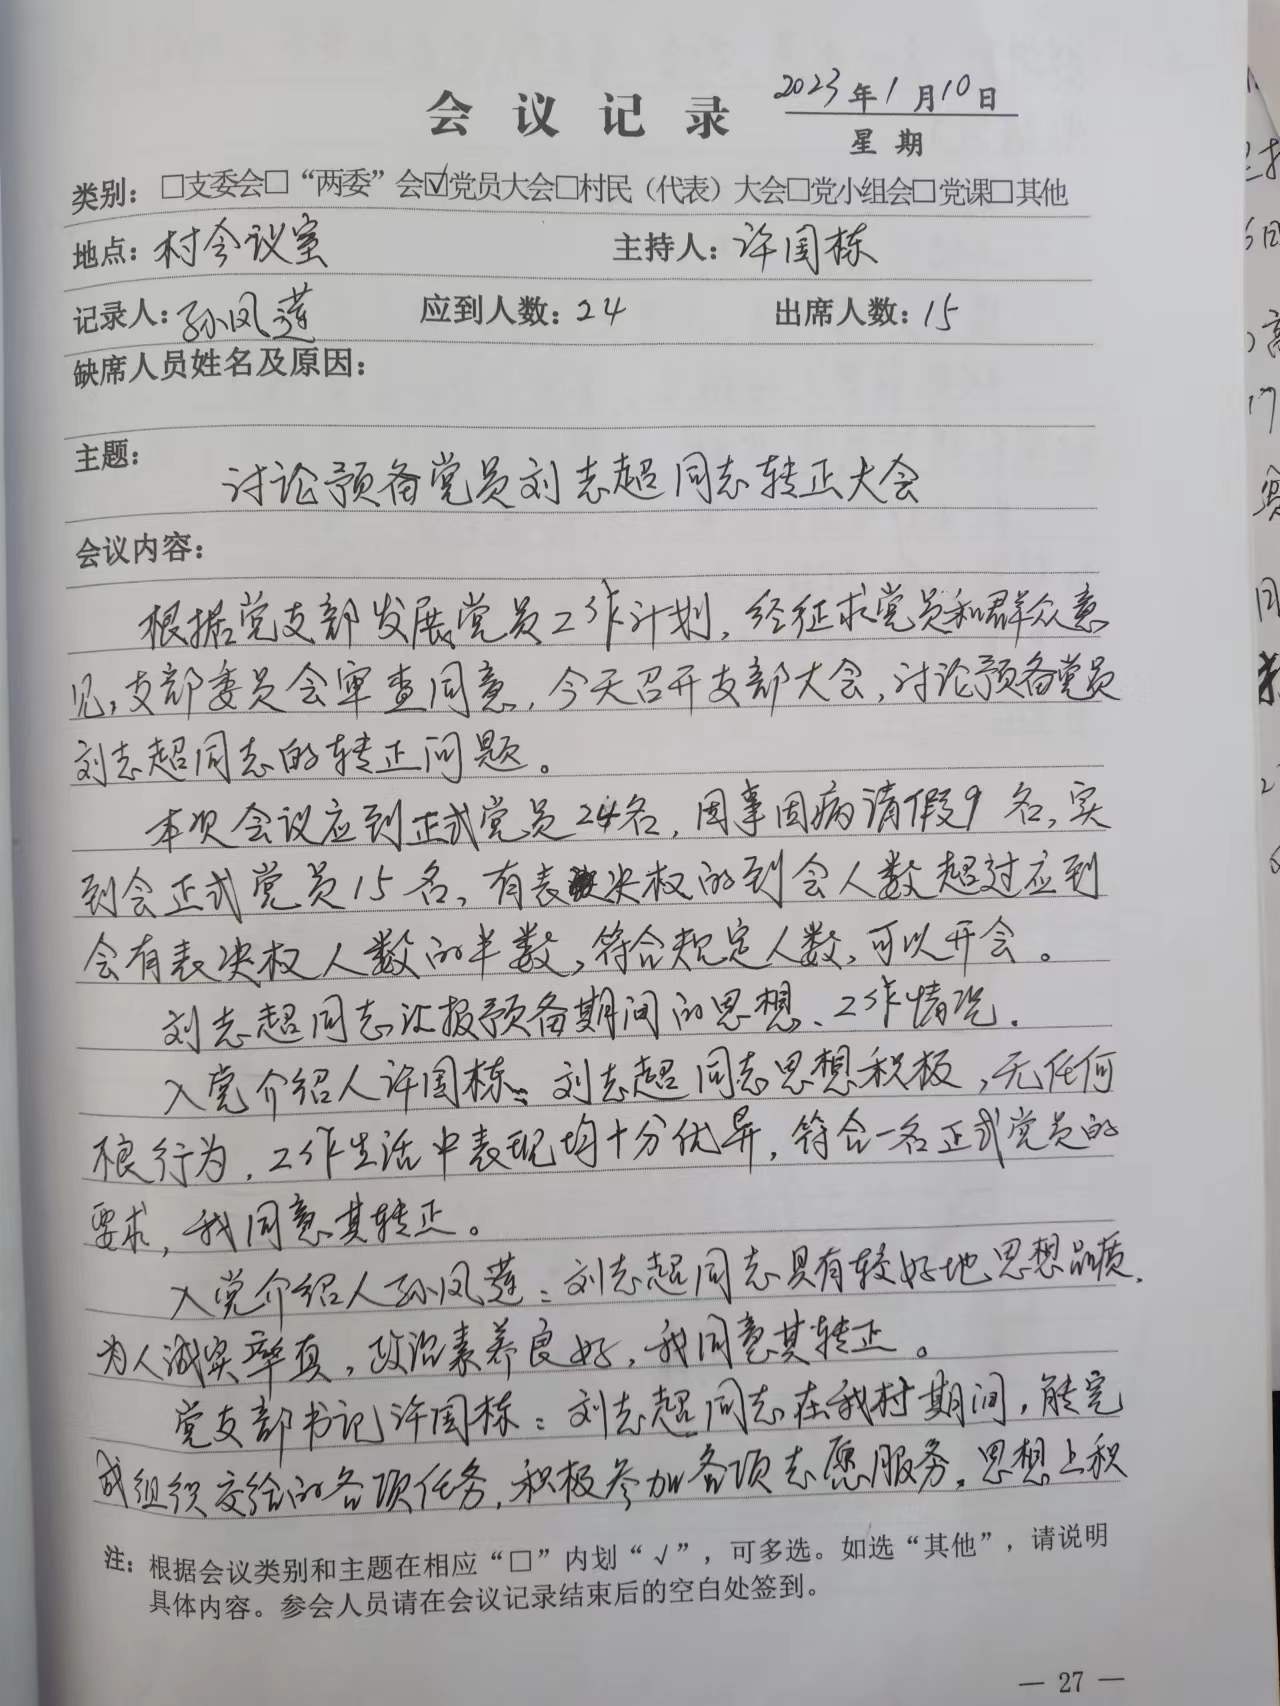 会议记录
2023年1月10日
星期
类别：□支委会□“两委”会☑党员大会□村民（代表）大会□党小组会□党课□其他
地点：村会议室 主持人：许国栋
记录人：孙凤莲 应到人数：24 出席人数：15
缺席人员姓名及原因：
主题：
讨论预备党员刘志超同志转正大会
会议内容：
根据党支部发展党员工作计划，经征求党员和群众意
见，支部委员会审查同意，今天召开支部大会，讨论预备党员
刘志超同志的转正问题。
本次会议应到正式党员24名，因事因病请假9名，实
到会正式党员15名，有表决权的到会人数超过应到
会有表决权人数的半数，符合规定人数，可以开会。
刘志超同志汇报预备期间的思想、工作情况.
入党介绍人许国栋：刘志超同志思想积极，无任何
不良行为，工作生活中表现均十分优异，符合一名正式党员的
要求，我同意其转正。
入党介绍人孙凤莲：刘志超同志具有较好地思想品质，
为人诚实率真，政治素养良好，我同意其转正。
党支部书记许国栋：刘志超同志在我村期间，能完
成组织交给的各项任务，积极参加各项志愿服务，思想上积
注：根据会议类别和主题在相应“□”内划“√”，可多选。如选“其他”，请说明
具体内容。参会人员请在会议记录结束后的空白处签到。
— 27 —